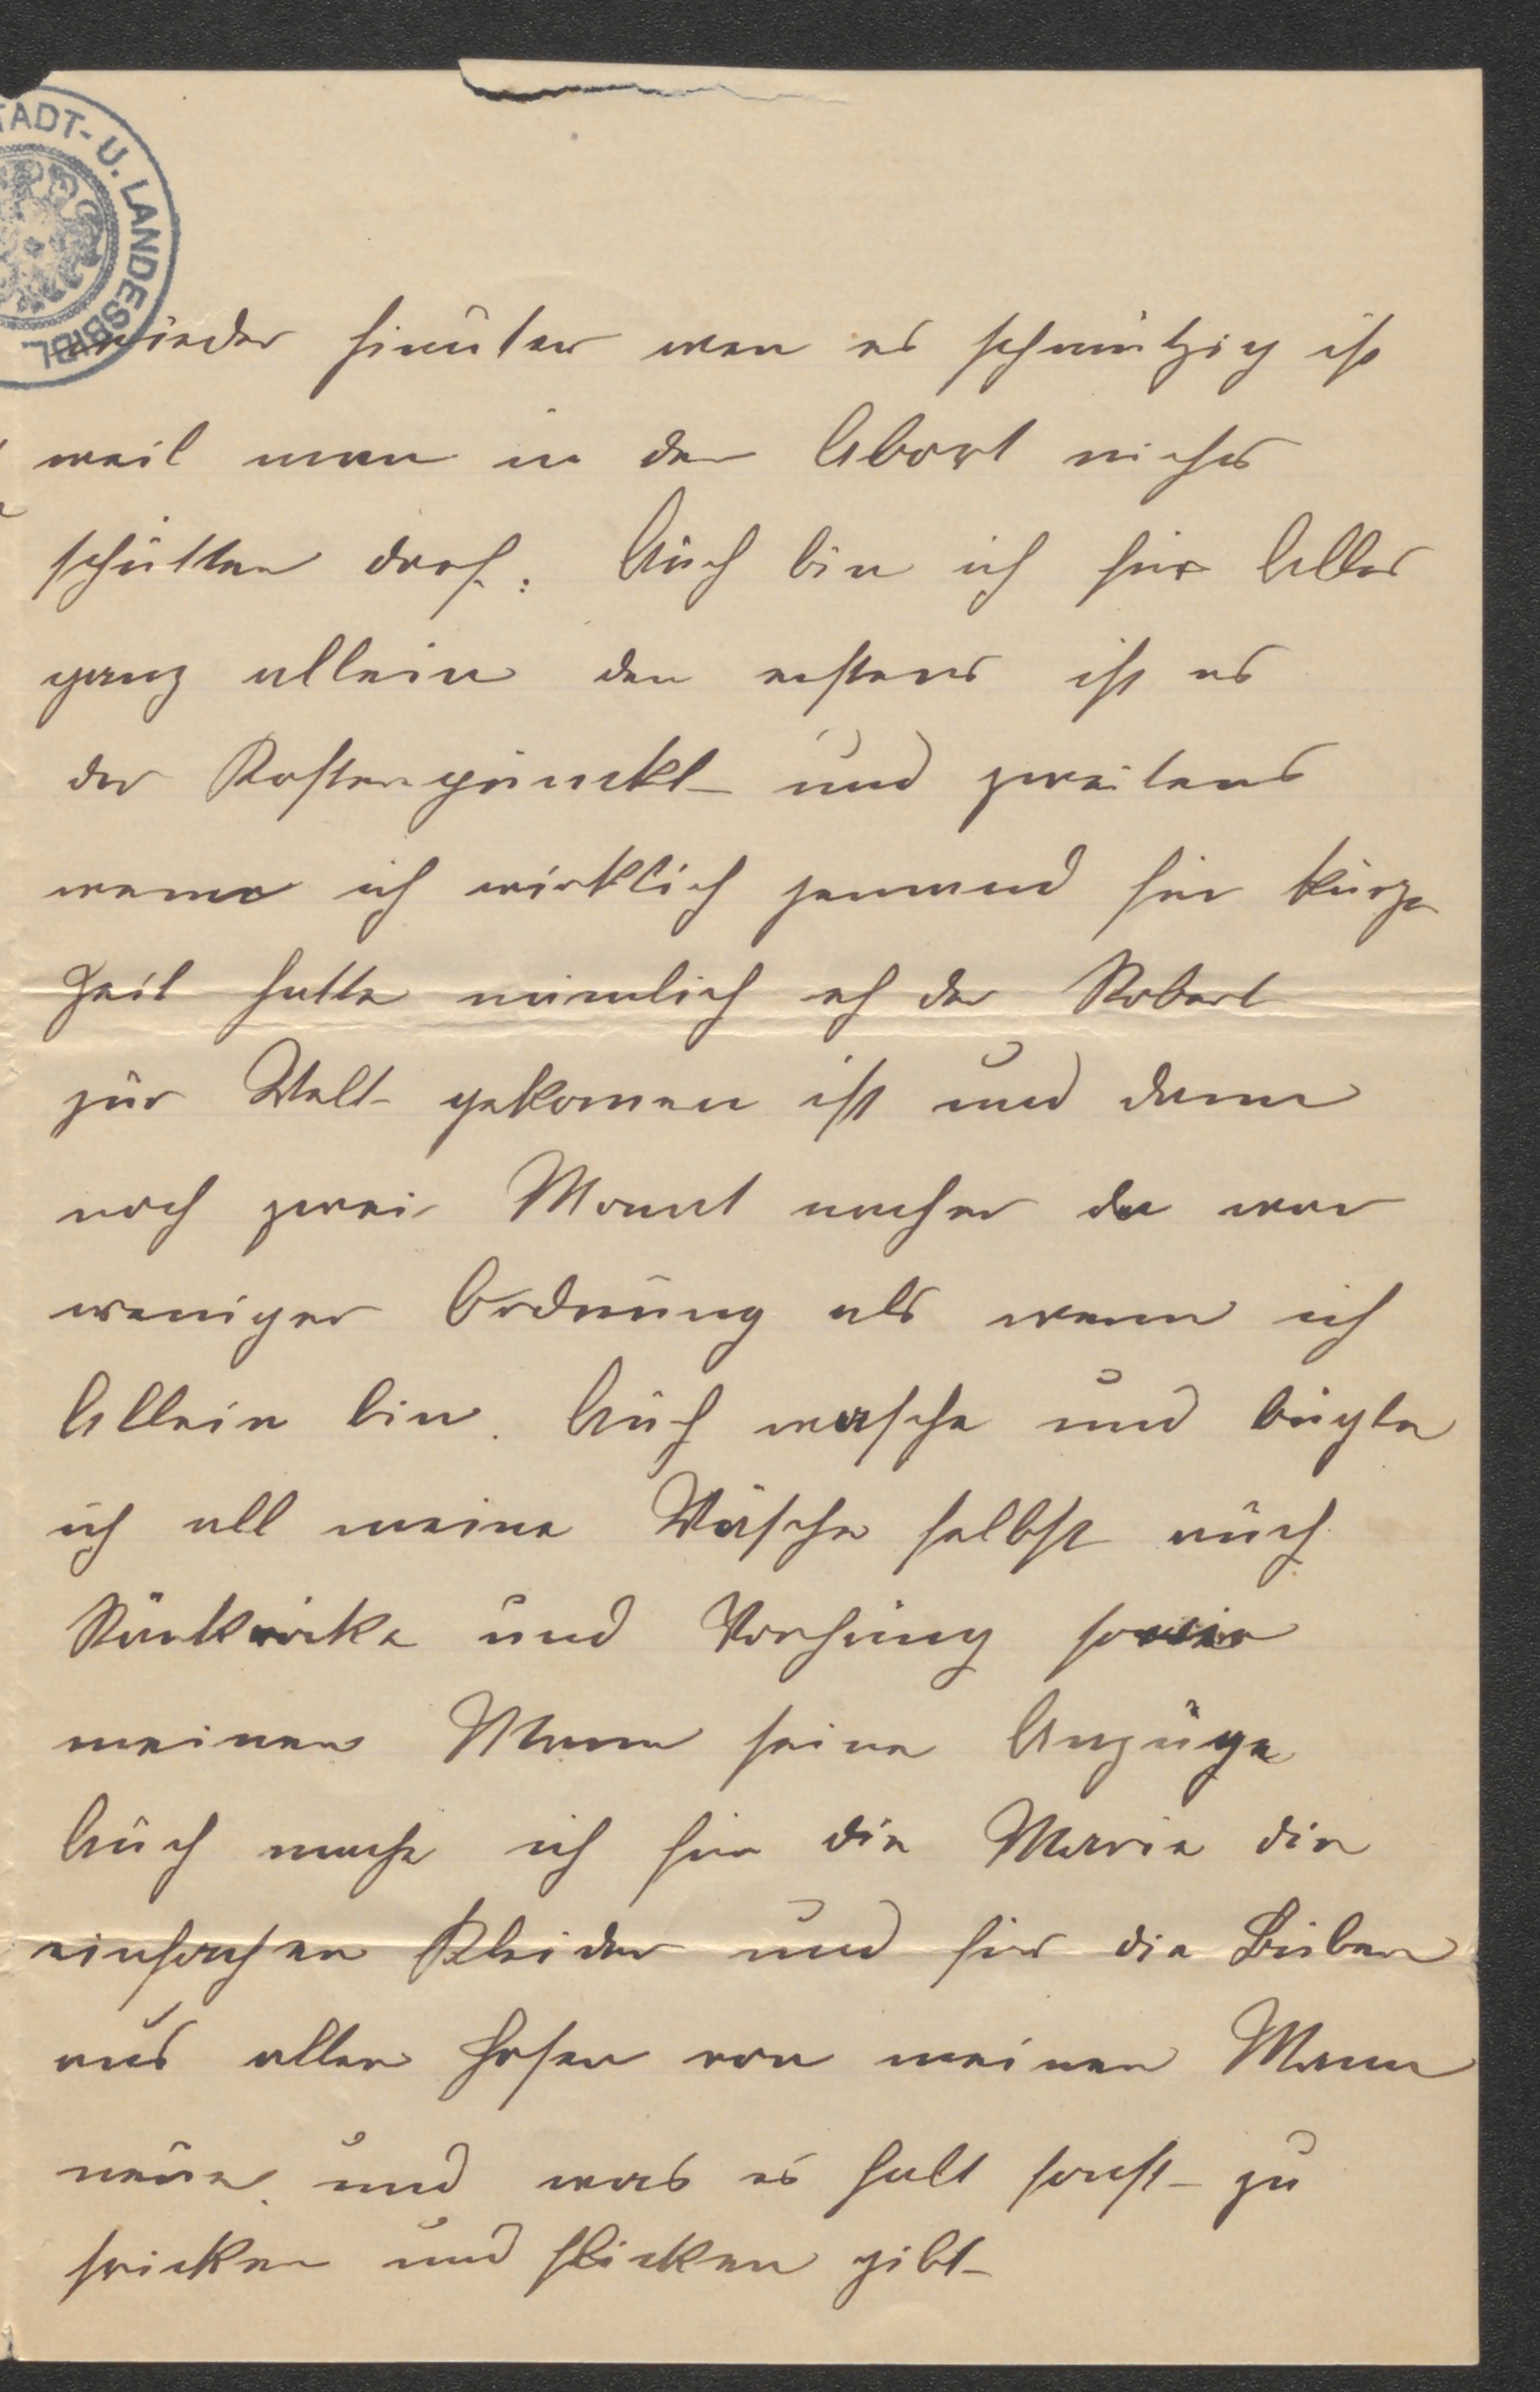 STADT- U. LANDESBIBL
wieder hinuter wen es schmützig ist
weil man in den Abort nichts
schütten darf. Auch bin ich für Alles
ganz allein den erstens ist es
der Kostenpunckt und zweitens
wenn ich wirklich jemand für kurze
Zeit hatte nämlich eh der Robert
zur Welt gekomen ist und dann
noch zwei Monat nacher da war
weniger Ordnung als wenn ich
Allein bin. Auch wasche und bügle
ich all meine Wäsche selbst auch
und Vorhäng sowie
meinen Mann seine Anzüge
Auch mache ich für die Marie die
einfachen Kleider und für die Buben
aus alten Hosen von meinen Mann
neue und was es halt sonst zu
stricken und flicken gibt